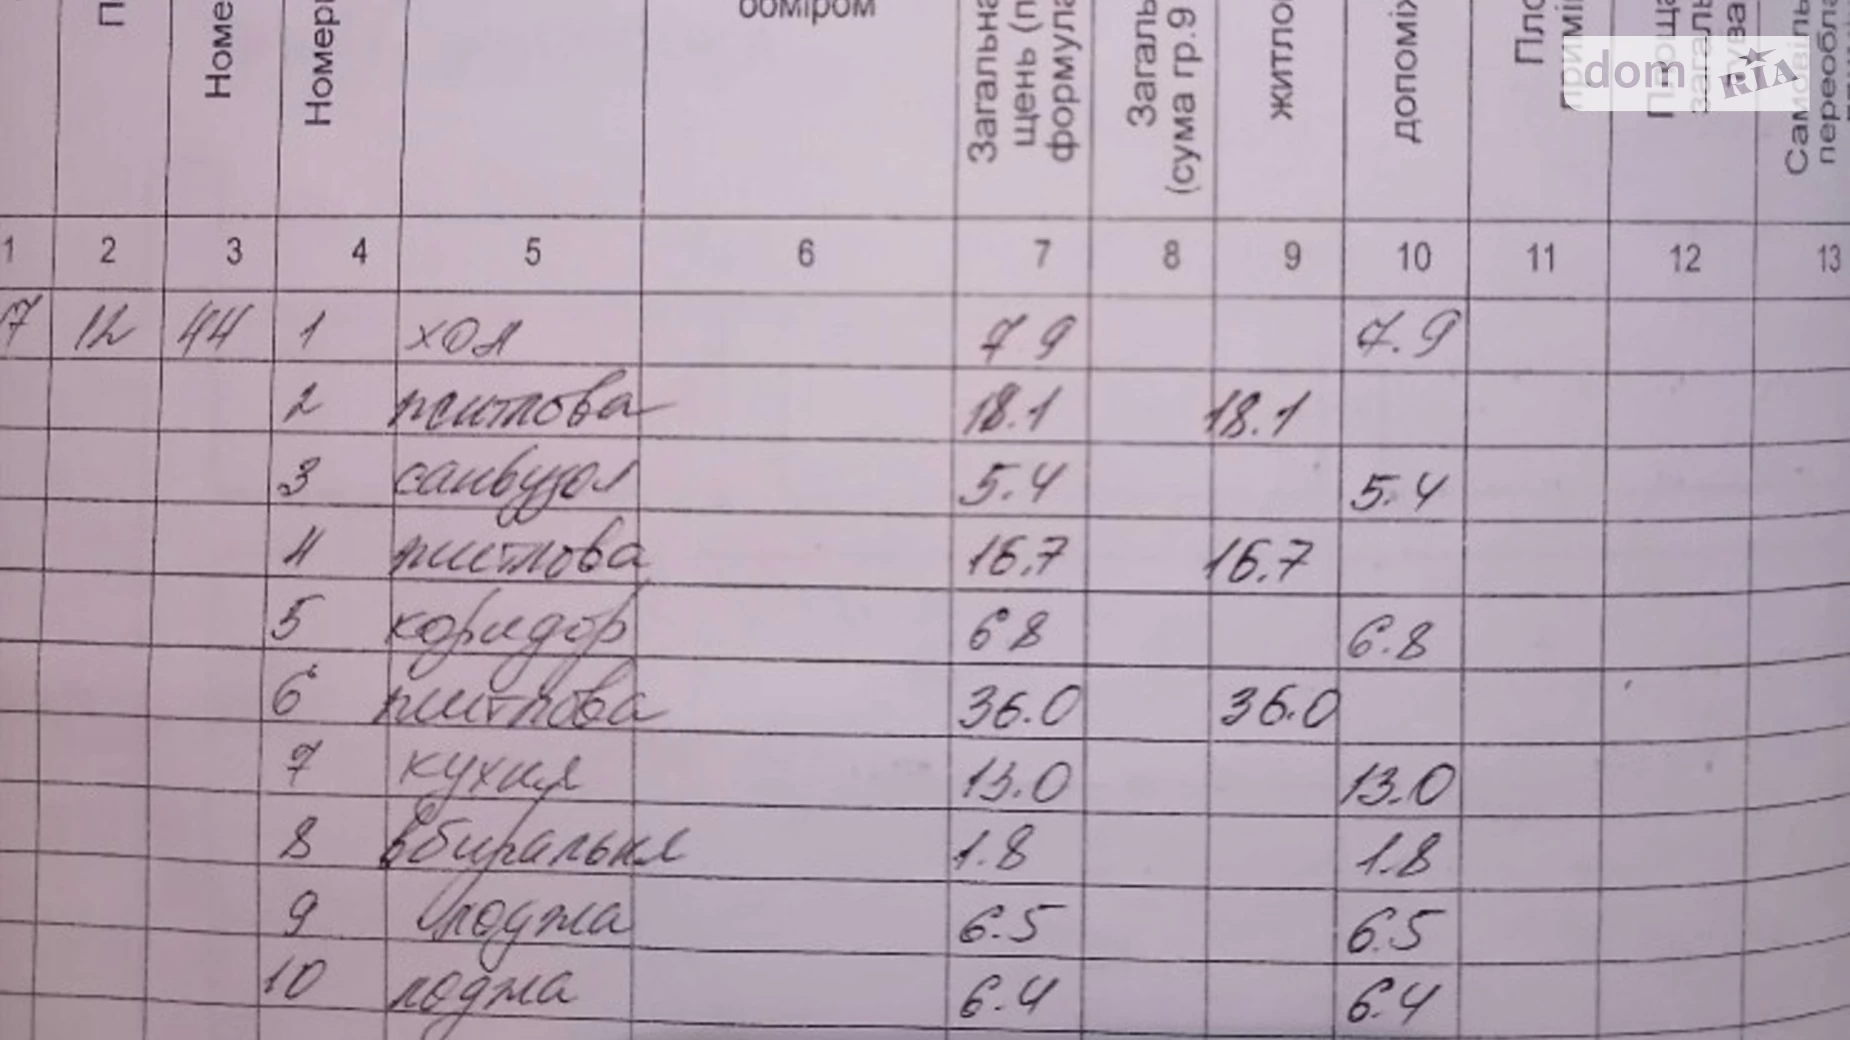 обміром
Номе
Номер
Загальна
щень (п
формула
Загаль
(сума гр.9
житло
допоміж
Пло
Площа
загаль
Самовіль
переобла
dom RIA
1 2 3 4 5 6 7 8 9 10 11 12 13
7 12 44 1 хол 7 9 7.9
2 житлова 18.1 18.1
3 санвузол 5.4 5.4
4 житлова 16.7 16.7
5 коридор 6 8 6.8
6 житлова 36.0 36.0
7 кухня 13.0 13.0
8 вбиральня 1.8 1.8
9 лоджа 6.5 6.5
10 лоджа 6.4 6.4